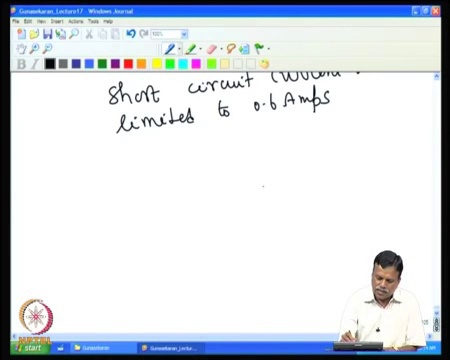 Gunasekaran_Lecture17 - Windows Journal
File Edit View Insert Actions Tools Help
100%
B I
short circuit
limited to 0.6 Amps
NPTEL
start Gunasekaran Gunasekaran_Lectu...